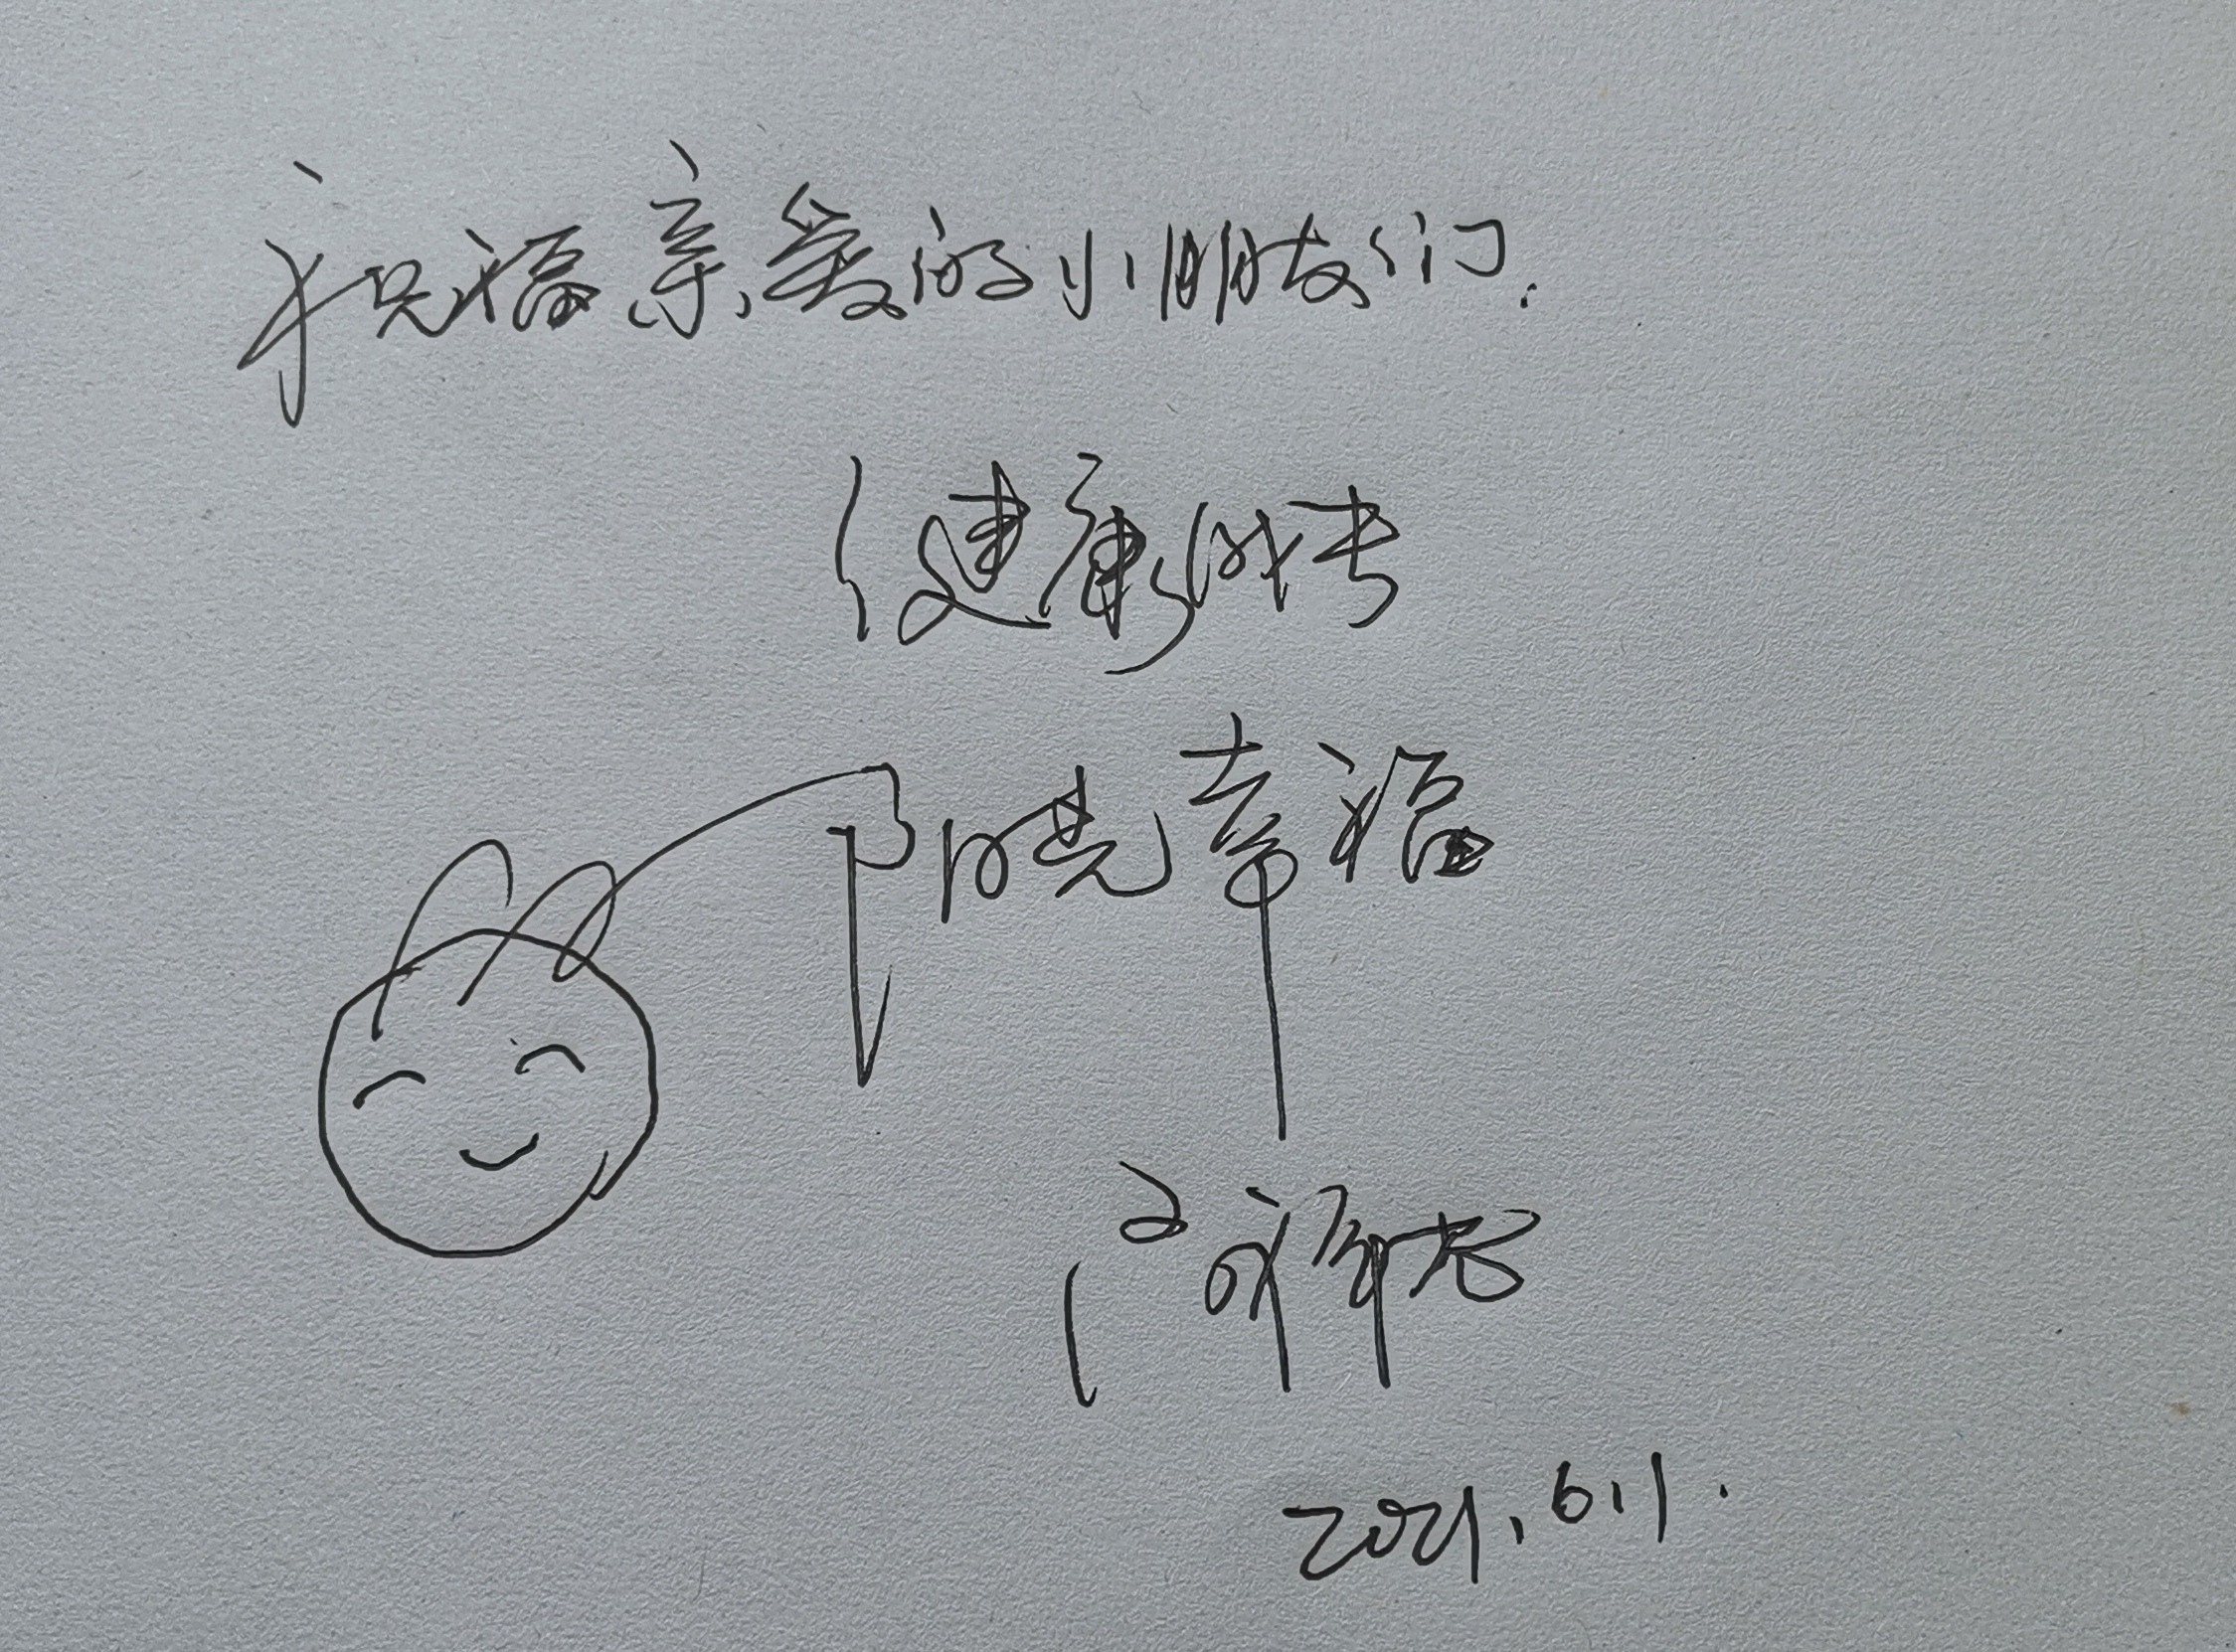 祝福亲爱的小朋友们:
健康成长
阳光幸福
2021.6.1.